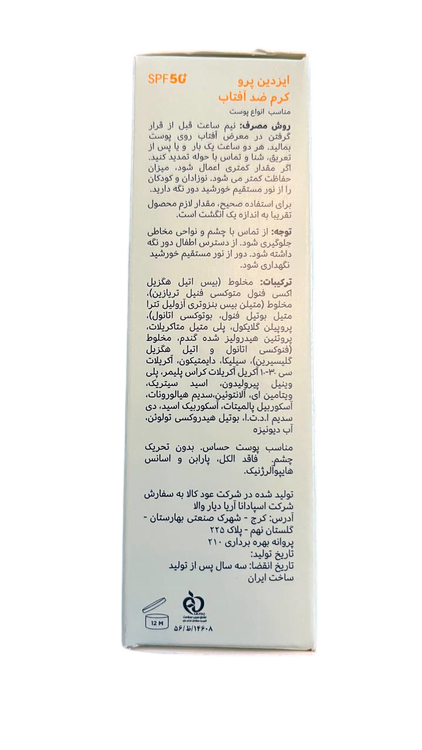 SPF 50
ایزدین پرو
کرم ضد آفتاب
مناسب انواع پوست
روش مصرف: نیم ساعت قبل از قرار
گرفتن در معرض آفتاب روی پوست
بمالید. هر دو ساعت یک بار و یا پس از
تعریق، شنا و تماس با حوله تمدید کنید.
اگر مقدار کمتری اعمال شود، میزان
حفاظت کمتر می شود. نوزادان و کودکان
را از نور مستقیم خورشید دور نگه دارید.
برای استفاده صحیح، مقدار لازم محصول
تقریبا به اندازه یک انگشت است.
توجه: از تماس با چشم و نواحی مخاطی
جلوگیری شود. از دسترس اطفال دور نگه
داشته شود. دور از نور مستقیم خورشید
نگهداری شود.
ترکیبات: مخلوط (بیس اتیل هگزیل
اکسی فنول متوکسی فنیل تریازین)،
مخلوط (متیلن بیس بنزوتری آزولیل تترا
متیل بوتیل فنول، بوتوکسی اتانول)،
پروپیلن گلایکول، پلی متیل متاکریلات،
پروتئین هیدرولیز شده گندم، مخلوط
(فنوکسی اتانول و اتیل هگزیل
گلیسیرین)، سیلیکا، دایمتیکون، آکریلات
سی ۳۰-۱۰ آکریل آکریلات کراس پلیمر، پلی
وینیل پیرولیدون، اسید سیتریک،
ویتامین ای، آلانتوئین،سدیم هیالورونات،
آسکوربیل پالمیتات، آسکوربیک اسید، دی
سدیم ا.د.ت.ا، بوتیل هیدروکسی تولوئن،
آب دیونیزه
مناسب پوست حساس. بدون تحریک
چشم. فاقد الکل، پارابن و اسانس
هایپوآلرژنیک.
تولید شده در شرکت عود کالا به سفارش
شرکت اسپادانا آریا دیار والا
آدرس: کرج - شهرک صنعتی بهارستان -
گلستان نهم - پلاک ۲۲۵
پروانه بهره برداری ۲۱۰
تاریخ تولید:
تاریخ انقضا: سه سال پس از تولید
ساخت ایران
12 M
۵۶/ظ/۱۴۶۰۸